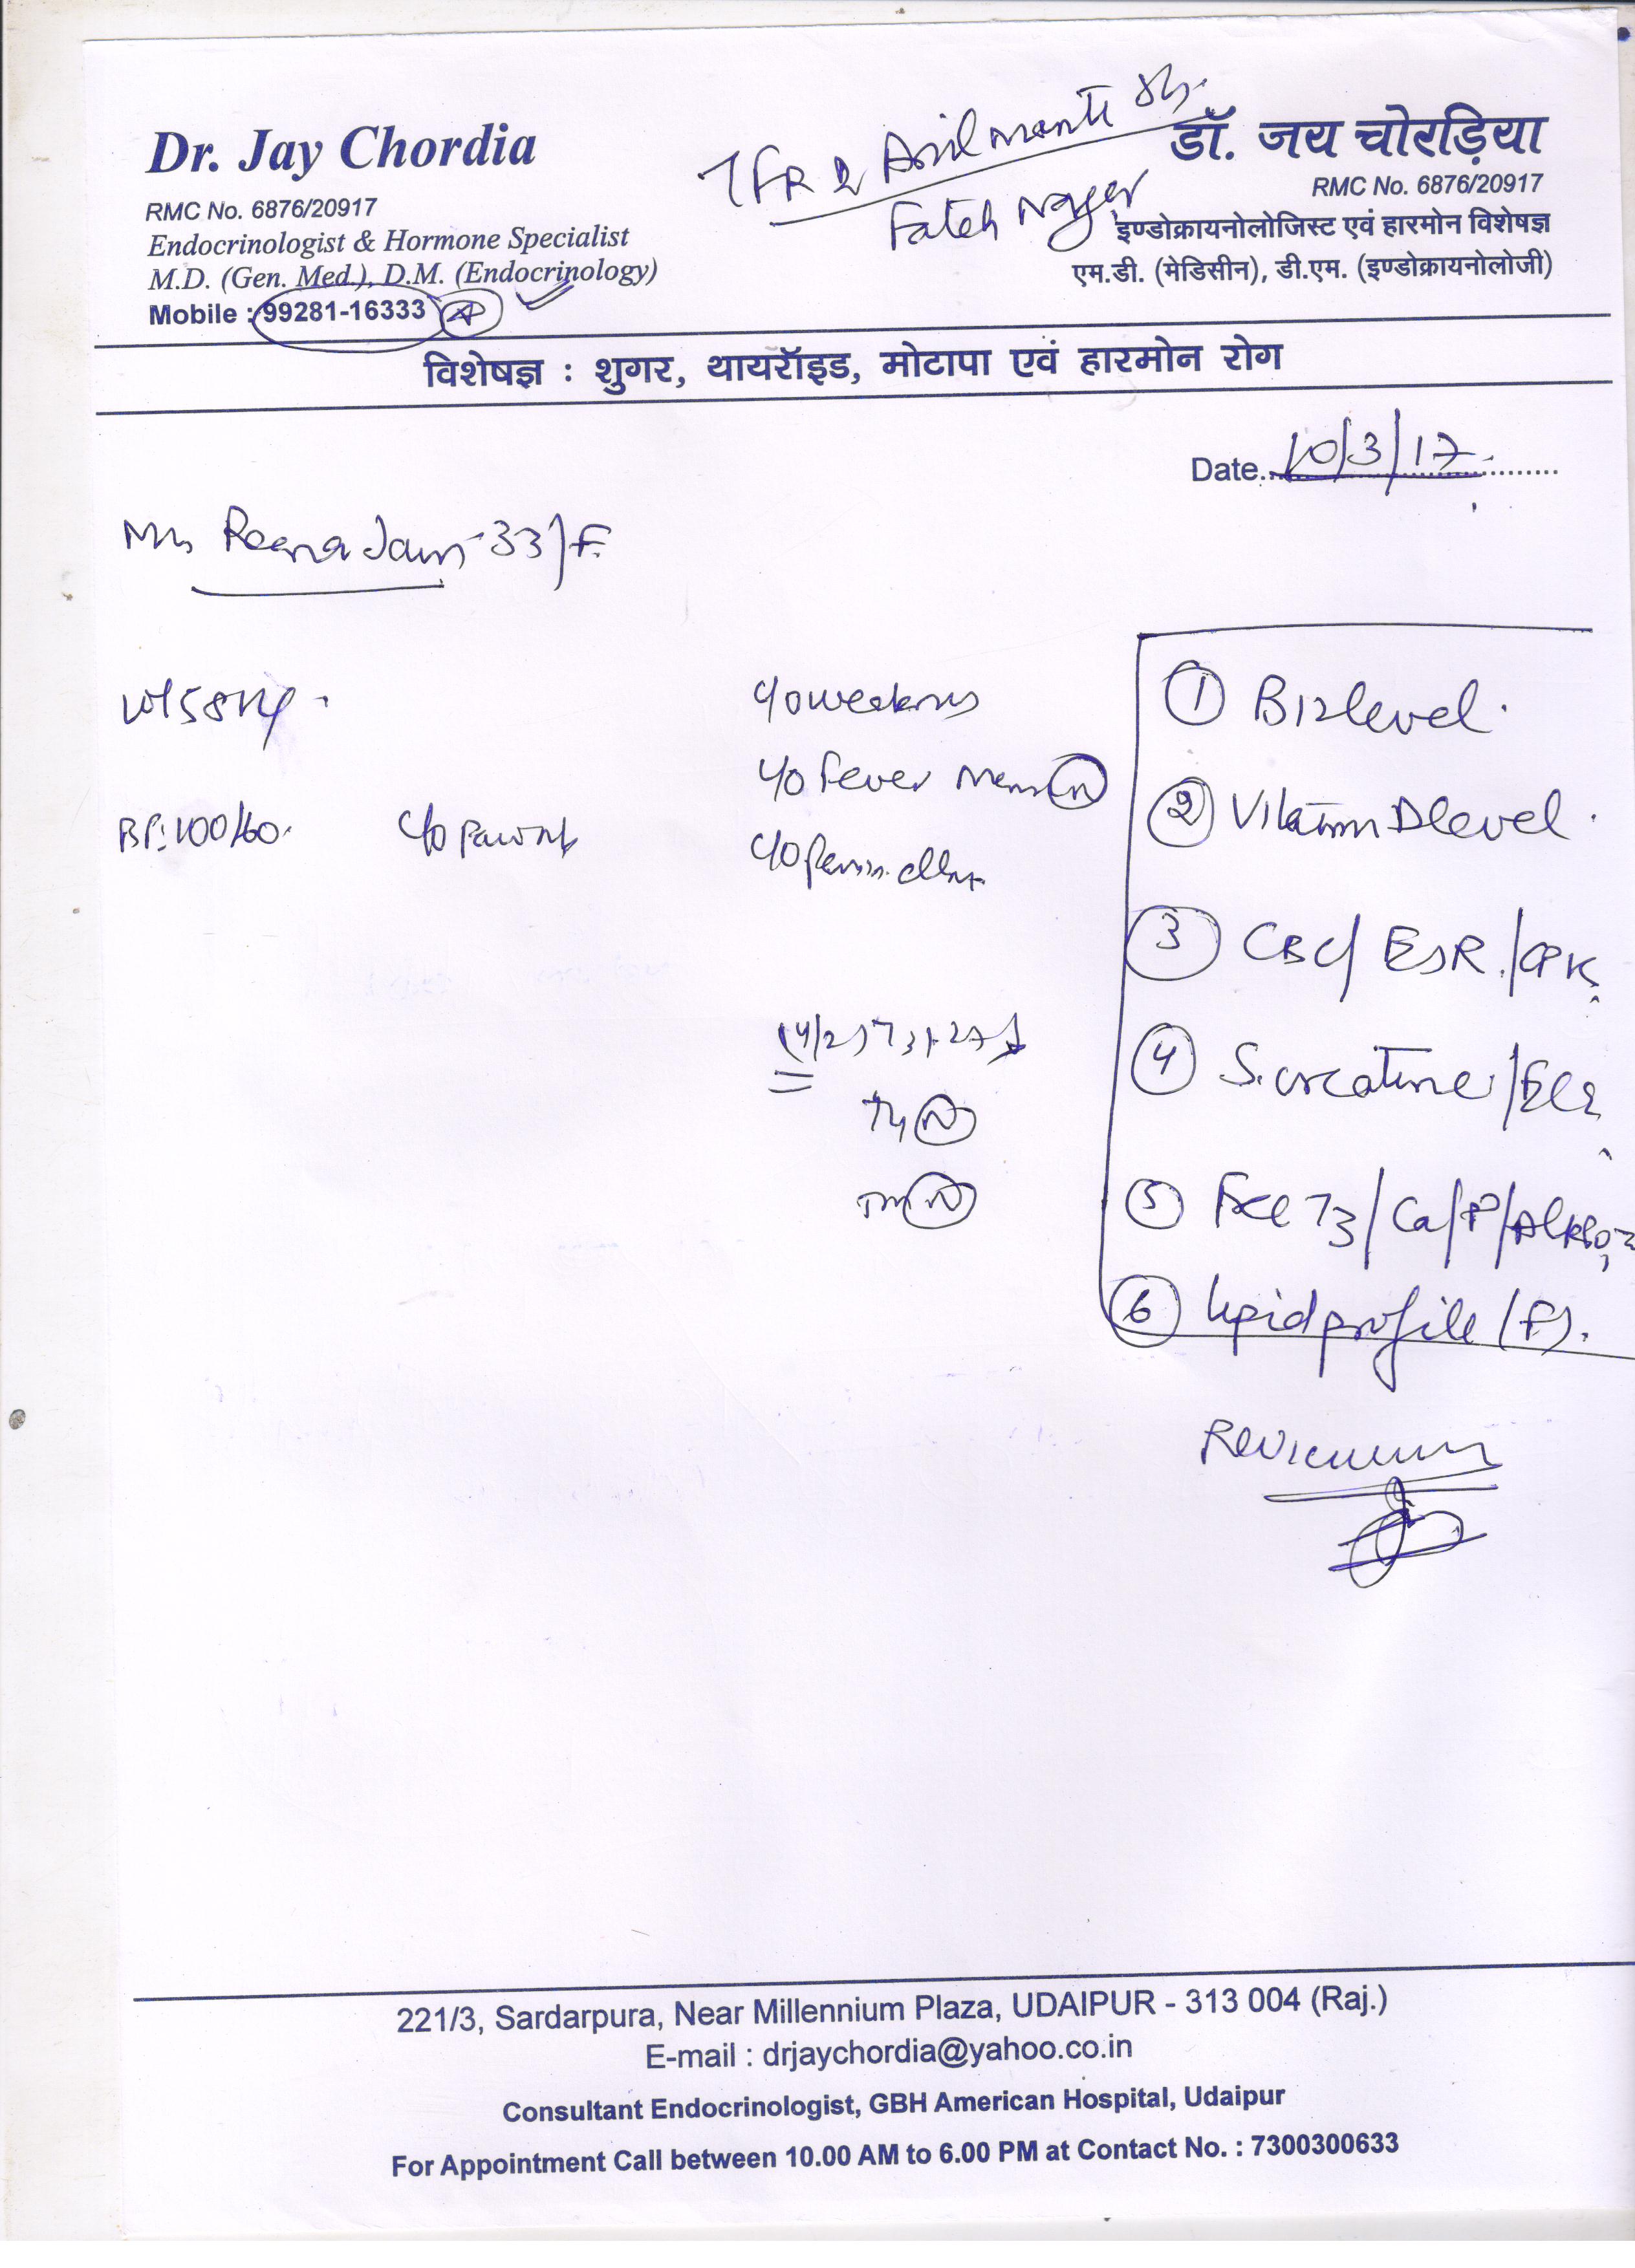 Dr. Jay Chordia
RMC No. 6876/20917
Endocrinologist & Hormone Specialist
M.D. (Gen. Med.), D.M. (Endocrinology)
Mobile : 99281-16333
Fateh Nager
डॉ. जय चोरड़िया
RMC No. 6876/20917
इण्डोक्रायनोलोजिस्ट एवं हारमोन विशेषज्ञ
एम.डी. (मेडिसीन), डी.एम. (इण्डोक्रायनोलोजी)
विशेषज्ञ : शुगर, थायरॉइड, मोटापा एवं हारमोन रोग
Date 10/3/17
Reena Jain 33/F.
Wt 58 kg
BP: 100/60
c/o
c/o weakness
c/o fever N
c/o
(4/2) T3
T4 N
N
1 B12 level.
2 Vitamin D level.
3 CBC/ ESR./CPK
4 S. creatine/
5 Free T3/Ca/P/
6 Lipid profile (F).
221/3, Sardarpura, Near Millennium Plaza, UDAIPUR - 313 004 (Raj.)
E-mail : drjaychordia@yahoo.co.in
Consultant Endocrinologist, GBH American Hospital, Udaipur
For Appointment Call between 10.00 AM to 6.00 PM at Contact No. : 7300300633